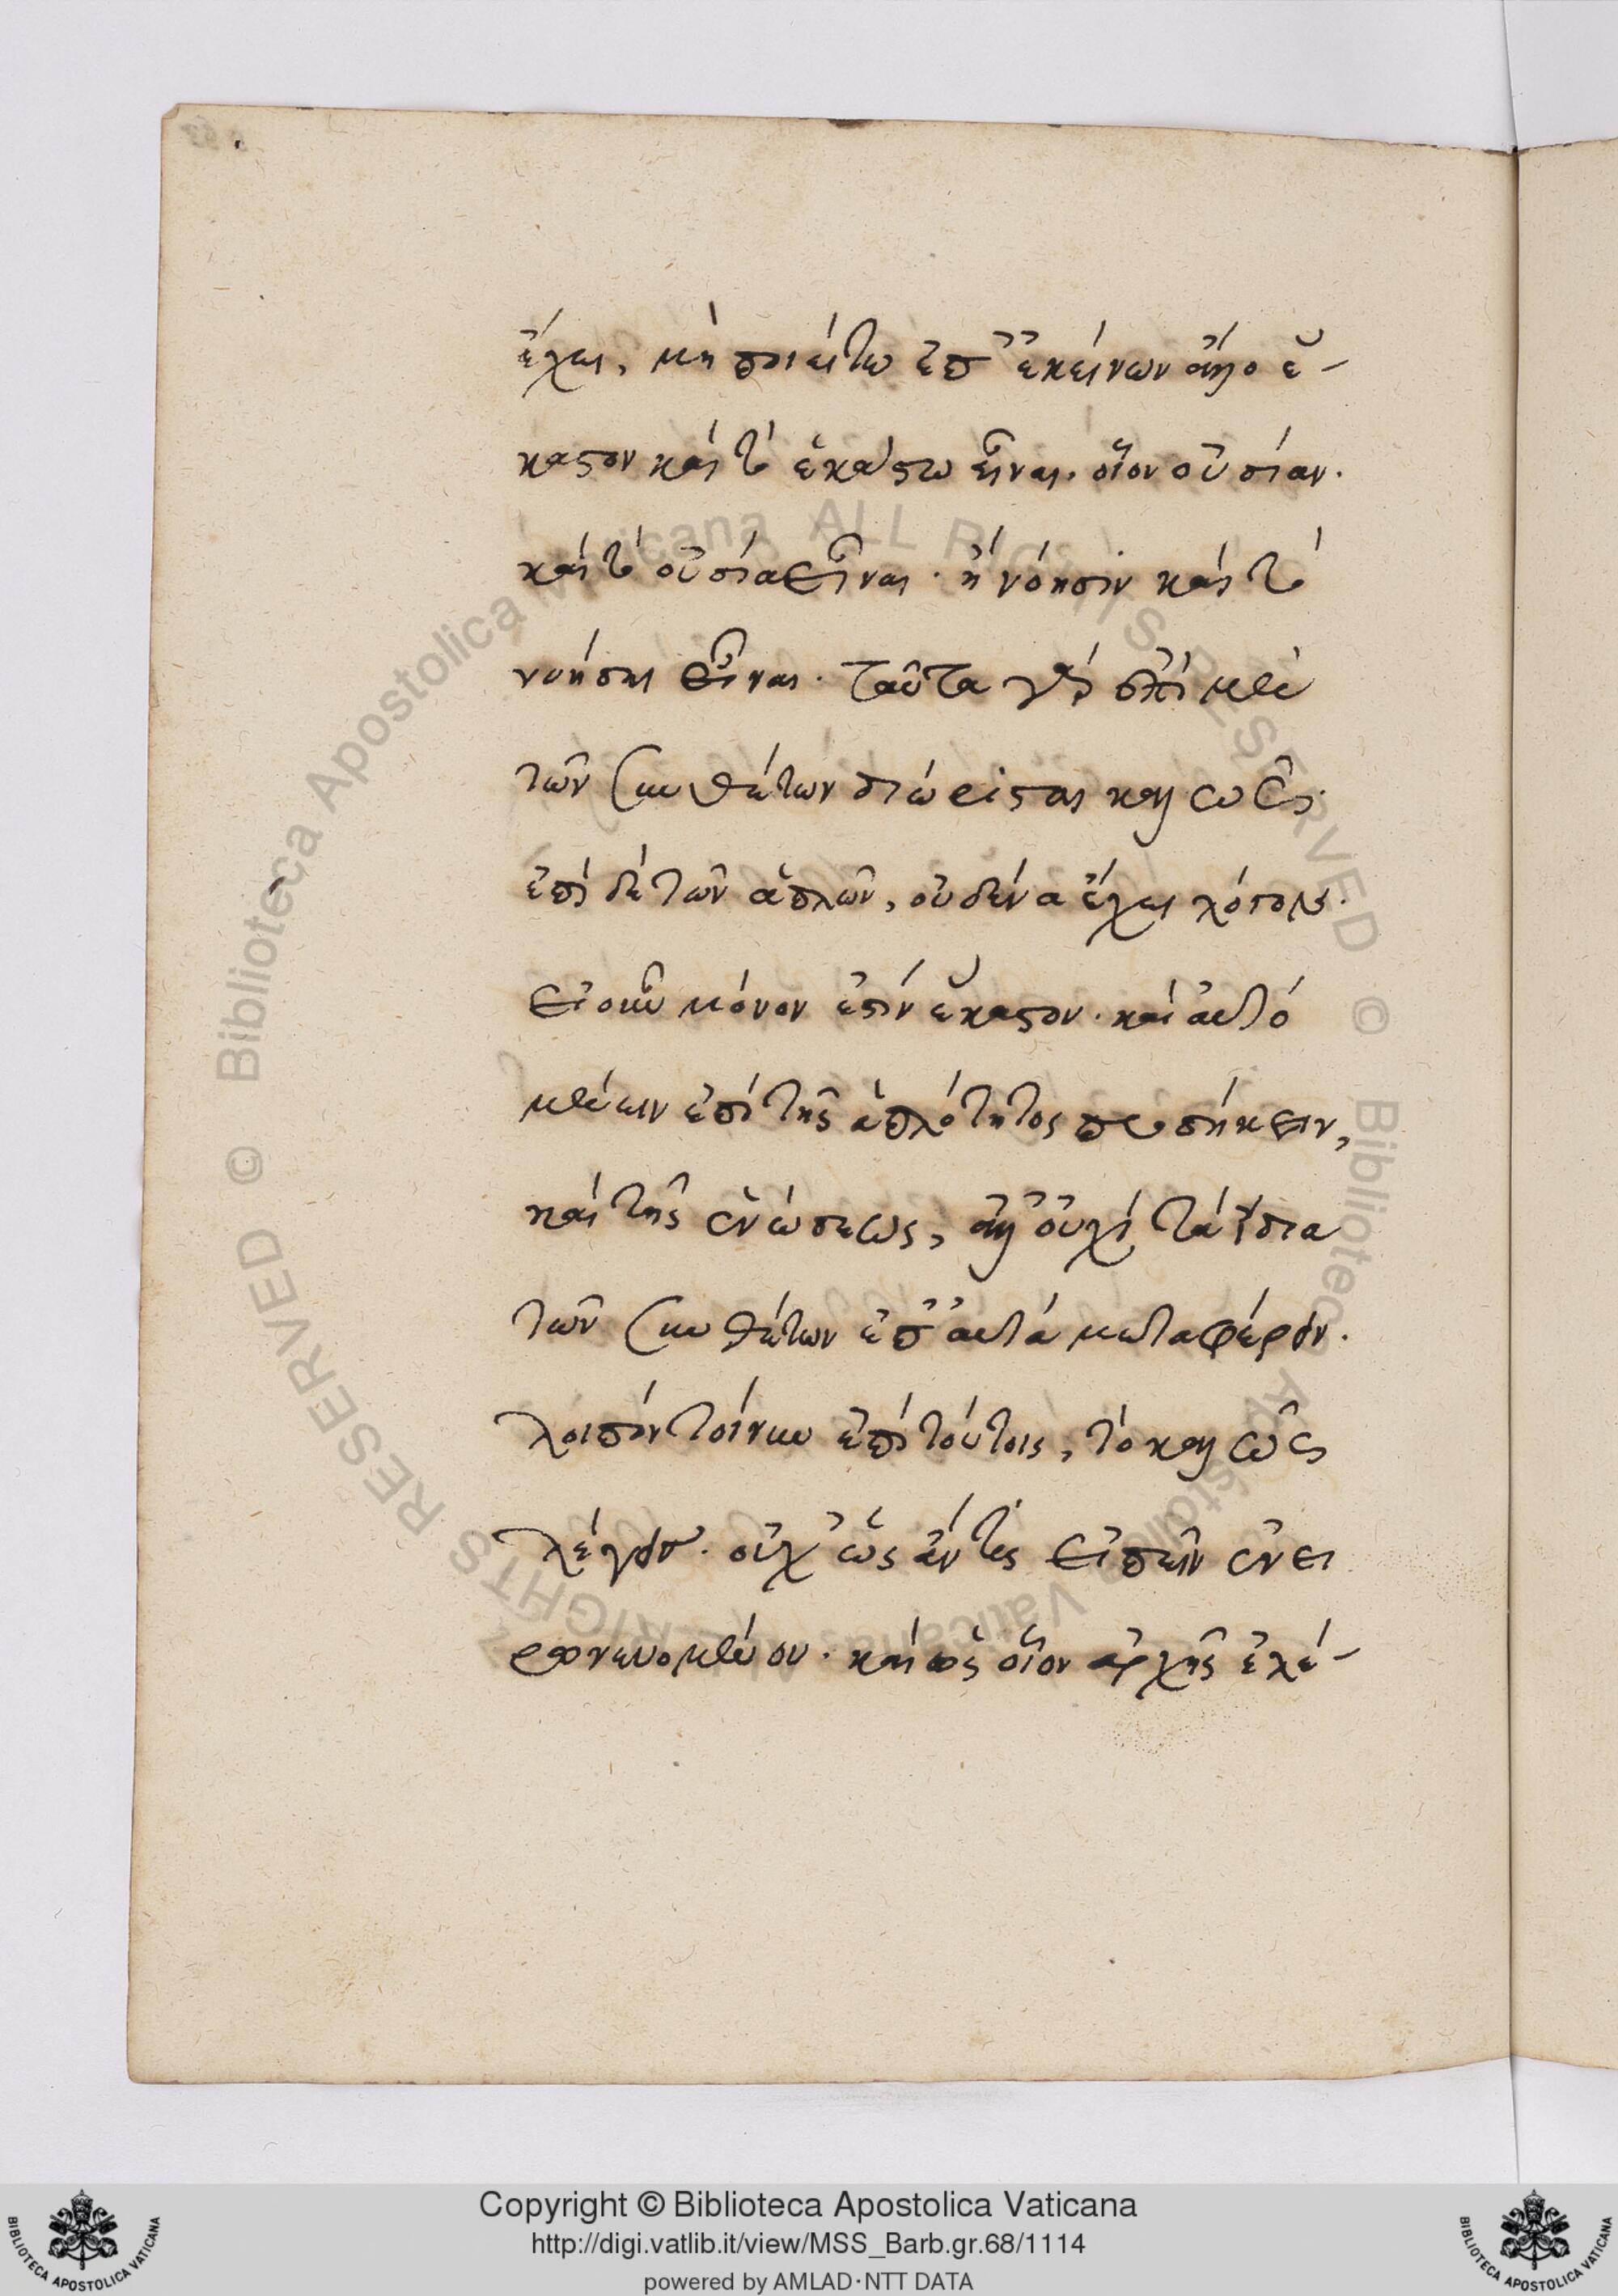 ἔχει, μὴ ποιείτω ἐπ' ἐκείνων ἄλλο ἕ-
καστον καὶ τὸ ἑκάστω εἶναι. οἷον οὐσίαν.
καὶ τὸ οὐσία εἶναι. ἢ νόησιν καὶ τὸ
νοήσει εἶναι. ταῦτα γὰρ ἐπὶ μὲν
τῶν συνθέτων διώρισται καλῶς.
ἐπὶ δὲ τῶν ἁπλῶν, οὐδένα ἔχει λόγον.
εἰ οὖν μόνον ἐστὶν ἕκαστον. καὶ αὐτὸ
μένειν ἐπὶ τῆς ἁπλότητος προσήκειν,
καὶ τῆς ἑνώσεως, ἀλλ' οὐχὶ τὰ ἴδια
τῶν συνθέτων ἐπ' αὐτὰ μεταφέρειν.
λοιπὸν τοίνυν ἐπὶ τούτοις, τὸ καλῶς
λέγειν. οὐχ' ὡς ἄν τις εἰπεῖν ἐν εἰ
ρωνευομένου. καὶ ὡς οἷον ἀρχῆς ἐλέ-
Copyright © Biblioteca Apostolica Vaticana
http://digi.vatlib.it/view/MSS_Barb.gr.68/1114
powered by AMLAD·NTT DATA
BIBLIOTECA APOSTOLICA VATICANA
BIBLIOTECA APOSTOLICA VATICANA
© Biblioteca Apostolica Vaticana ALL RIGHTS RESERVED © Biblioteca Apostolica Vaticana ALL RIGHTS RESERVED